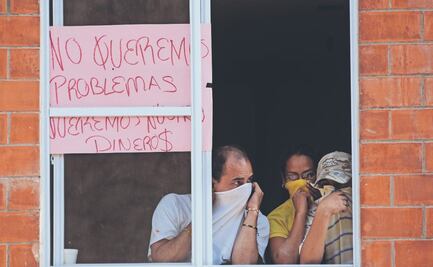 NO QUEREMOS
PROBLEMAS
QUEREMOS
DINERO$